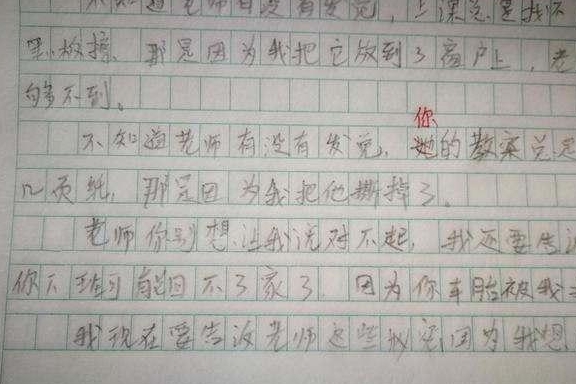 不知道老师有没有发觉，上课总是找不
黑板擦、那是因为我把它放到了窗户上，老
够不到。
你
不知道老师有没有发觉，她的教案总是
几页纸，那是因为我把他撕掉了。
老师你别想让我说对不起，我还要告
你下班可能回不了家了 因为你车胎被我
我现在要告诉老师这些秘密因为我想